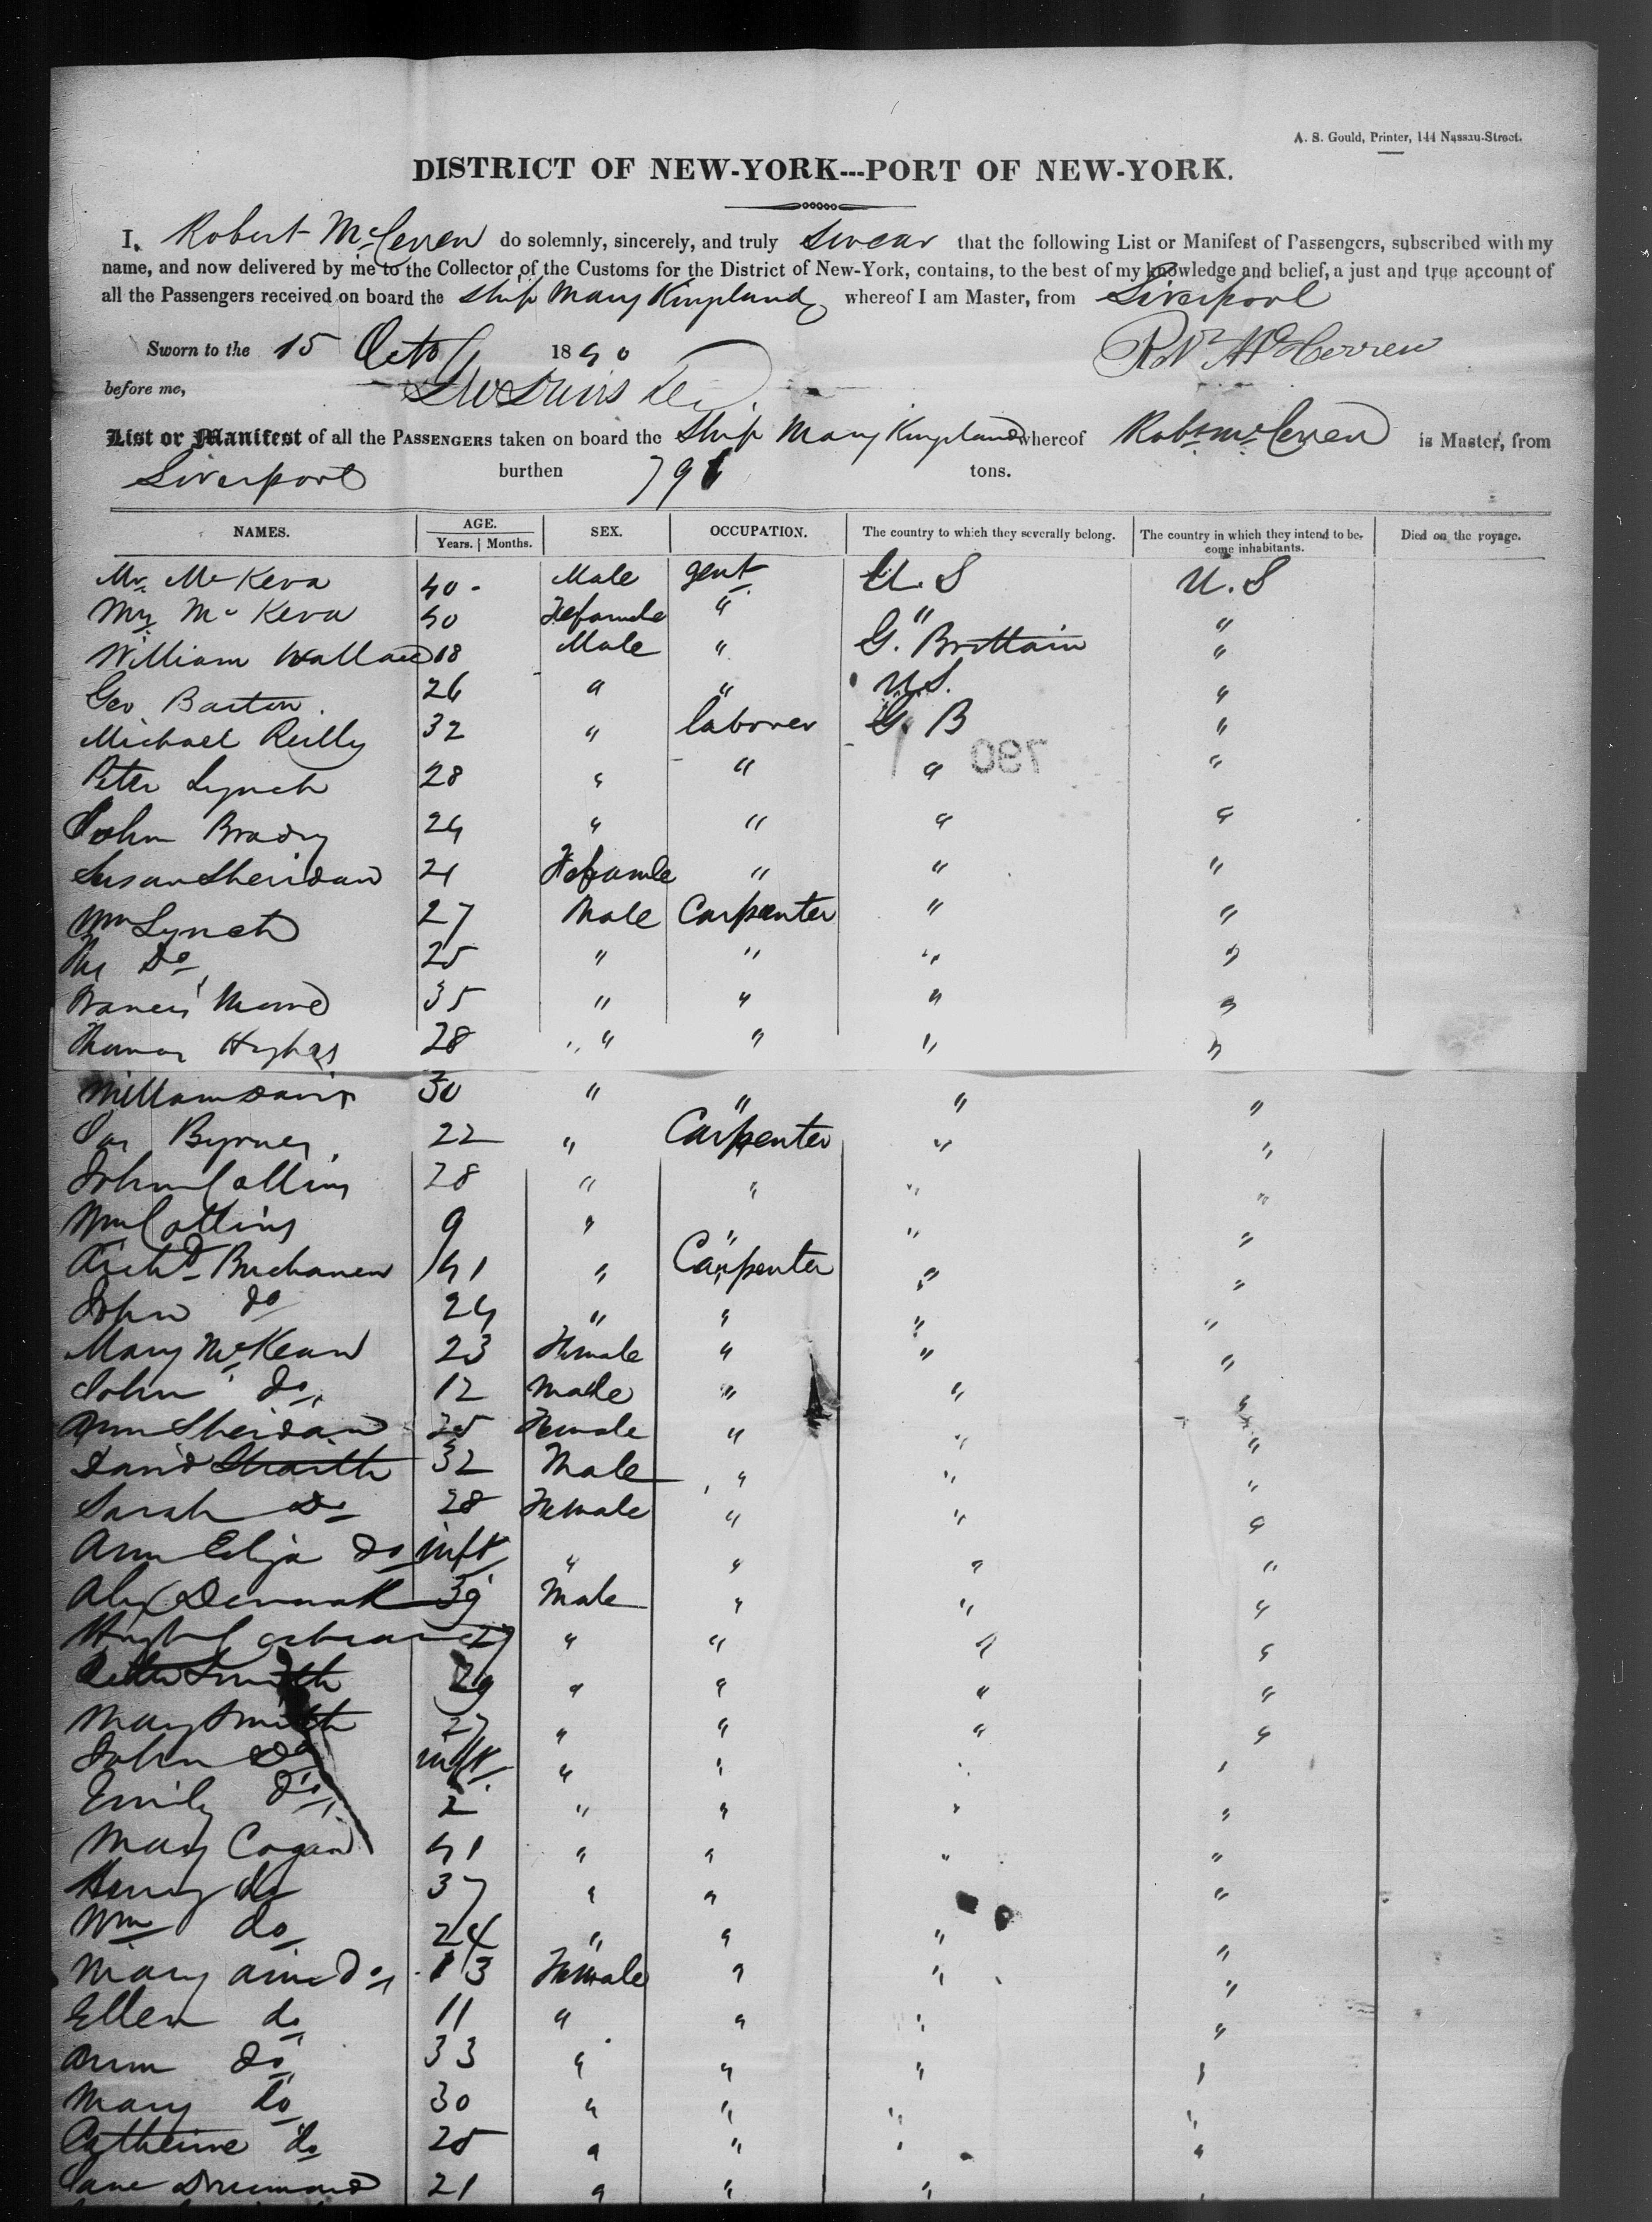 A. S. Gould, Printer, 144 Nassau-Street.
DISTRICT OF NEW-YORK---PORT OF NEW-YORK.
I, Robert McCerren do solemnly, sincerely, and truly Swear that the following List or Manifest of Passengers, subscribed with my
name, and now delivered by me to the Collector of the Customs for the District of New-York, contains, to the best of my knowledge and belief, a just and true account of
all the Passengers received on board the Ship Mary Kingsland whereof I am Master, from Liverpool
Sworn to the 15 Octo 1840
Robt McCerren
before me,
List or Manifest of all the PASSENGERS taken on board the Ship Mary Kingsland whereof Robt McCerren is Master, from
Liverpool burthen 796 tons.
NAMES. AGE. Years. | Months. SEX. OCCUPATION. The country to which they severally belong. The country in which they intend to become inhabitants. Died on the voyage.
Mr. McKeva 40 - Male gent. U.S U.S
Mrs McKeva 40 Female " " "
William Wallace 18 Male " G. Brittain "
Geo Barton 26 " " U.S. "
Michael Reilly 32 " laborer G. B "
780
Peter Lynch 28 " " " "
John Brady 24 " " " "
Susan Sheridan 21 Female " " "
Wm Lynch 27 Male Carpenter " "
Do 25 " " " "
Francis 35 " " " "
Thomas Hughes 28 " " " "
William Davis 30 " " " "
Jas Byrnes 22 " Carpenter " "
John Collins 28 " " " "
Wm Collins 9 " " " "
Richd Buchanen 41 " Carpenter " "
John do 24 " " " "
Mary McKean 23 Female " " "
John do 12 Male " " "
Ann Sheridan 25 Female " " "
David 32 Male " " "
Sarah Do 28 Female " " "
Ann Eliza do inft " " " "
Alex 39 Male " " "
Hugh 27 " " " "
Peter Smith 29 " " " "
Mary Smith 27 " " " "
John Do inft " " " "
Emily do 2 " " " "
Mary Cogan 41 " " " "
Henry do 37 " " "
Wm do 24 " " " "
Mary Ann do 13 Female " " "
Ellen do 11 " " " "
Ann do 33 " " " "
Mary do 30 " " " "
Catherine do 25 " " " "
Jane Drummond 21 " " " "